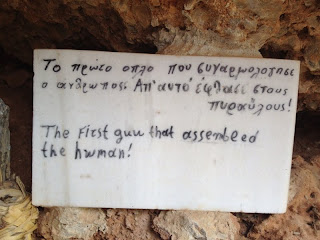 Το πρώτο οπλο που συγαρμολογησε
ο ανθρωπος! Απ' αυτό έφθασε στους
πυραύλους!
The first gun that assembeed
the human!